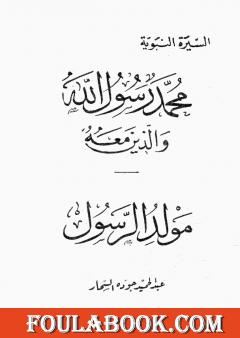 السيرة النبوية
محمد رسول الله
والذين معه
مولد الرسول
عبد الحميد جوده السحار
FOULABOOK.COM